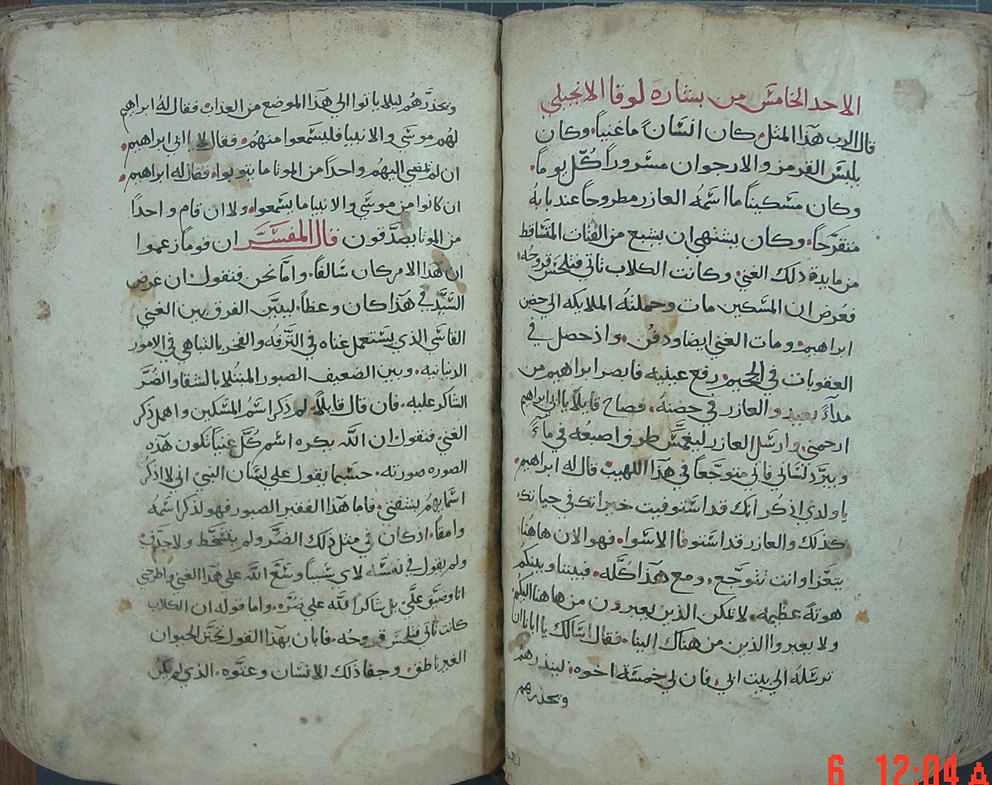 الاحد الخامس من بشارة لوقا الانجيلي
قال الرب هذا المثل كان انسان ما غنيا وكان
يلبس القرمز والارجوان مسرورا كل يوما
وكان مسكينا ما اسمه العازر مطروحا عند بابه
متقرحا وكان يشتهي ان يشبع من الفتات المتساقط
من مايدة ذلك الغني وكانت الكلاب تاتي فتلحس قروحه
فعرض ان المسكين مات وحملته الملايكه الى حضن
ابراهيم ومات الغني ايضا ودفن واذ حصل في
العقوبات في الجحيم رفع عينيه فابصر ابراهيم من
مداء بعيد والعازر في حضنه فصاح قايلا يا ابي ابراهيم
ارحمني وارسل العازر ليغمس طرف اصبعه في ماء
ويبرد لساني فاني متوجعا في هذا اللهيب قال له ابراهيم
يا ولدي اذكر انك قد استوفيت خيراتك في حياتك
كذلك والعازر قد استوفا الاسوا فهو الان هاهنا
يتعزا وانت تتوجع ومع هذا كله فبيننا وبينكم
هوته عظيمه لا يمكن الذين يعبرون من هاهنا اليكم
ولا يعبروا الذين من هناك الينا فقال اسالك يا ابا ان
ترسله الى بيت ابي فان لي خمسة اخوه لينذرهم
ويحذرهم
ويحذرهم ليلا ياتوا الى هذا الموضع من العذاب فقال له ابراهيم
لهم موسى والانبيا فليسمعوا منهم فقال لا يا ابي ابراهيم
ان لو يمضي اليهم واحدا من الموتا ما يتوبوا فقال له ابراهيم
ان كانوا من موسى والانبيا ما يسمعوا ولا ان قام واحدا
من الموتا يصدقون قال المفسر ان قوما زعموا
ان هذا الامر كان سالفا واما نحن فنقول ان غرض
السيد في هذا كان وعظا ليبين الفرق بين الغني
القاسي الذي يستعمل غناه في الترفه والفخر بالتباهي في الامور
الدنيانيه وبين الضعيف الصبور المبتلا بالشقا والضر
الشاكر عليه فان قال قايلا لم ذكر اسم المسكين واهمل ذكر
الغني فنقول ان الله يكره اسم كل غنيا تكون هذه
الصوره صورته حسبما يقول على لسان النبي اني لا اذكر
اسمايهم بشفتي فاما هذا الفقير الصبور فهو لذكر اسمه
وامقا اذ كان في مثل ذلك الضر ولم يتسخط ولا جدف
ولم يقول في نفسه لاي سببا وسع الله على هذا الغني واطرحني
انا وضيق علي بل شاكرا لله على ضره واما قوله ان الكلاب
كانت تاتي فتلحس قروحه فابان بهذا القول تحنن الحيوان
الغير ناطق وجفا ذلك الانسان وعتوه الذي لم يكن
6 12:04